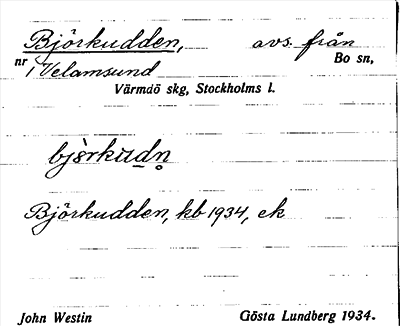 Björkudden, avs. från
nr 1 Velamsund Bo sn,
Värmdö skg, Stockholms l.
bjèrkùdn̥
Björkudden, kb 1934, ek
John Westin Gösta Lundberg 1934.